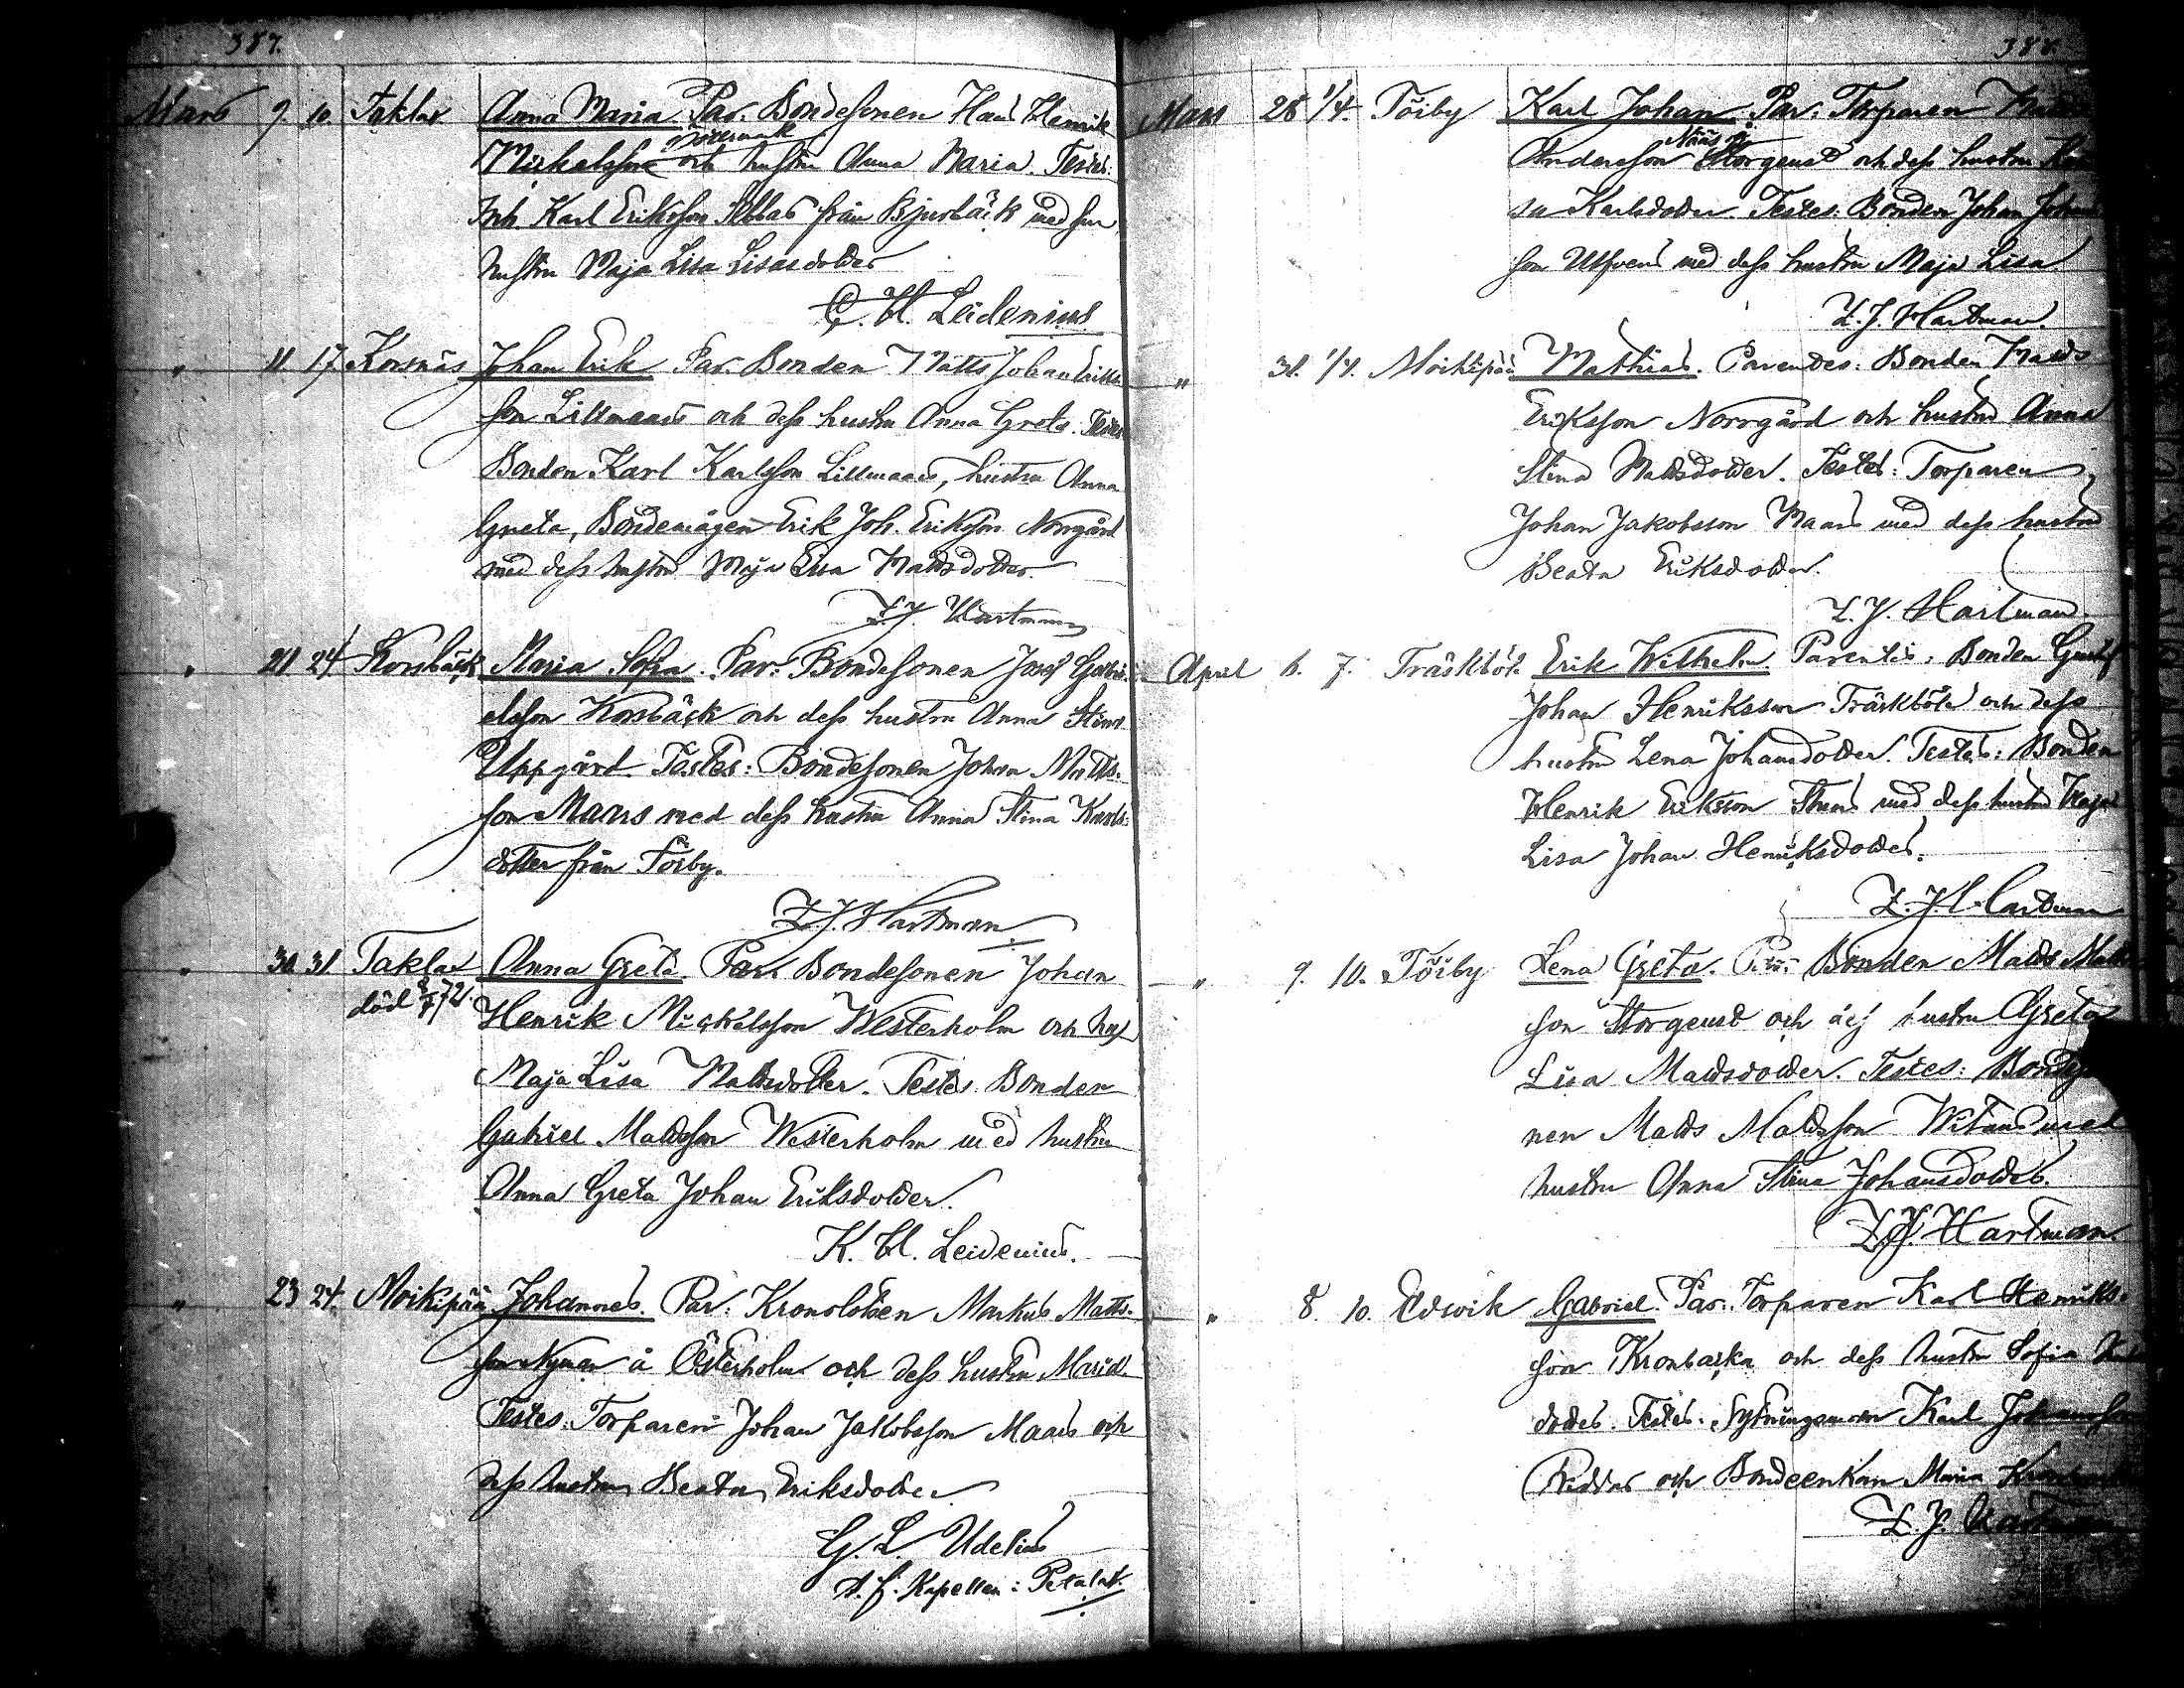 387.
Mars 9. 10. Taklax Anna Maria. Par. Bondesonen Hans Henrik
Mickelsson och hustru Anna Maria. Testes:
Inh. Karl Eriksson Ebbas från Bjurbäck med sin
hustru Maja Lisa Lisasdotter
C. H. Leidenius
" 11. 17. Korsnäs Johan Erik Par. Bonden Matts Johan Eriks
son Lillmaars och dess hustru Anna Greta. Testes
Bonden Karl Karlsson Lillmaars, hustru Anna
Greta, Bondemågen Erik Joh. Eriksson Norrgård
med dess hustru Maja Lisa Mattsdotter.
Z. J. Hartman
" 21. 24 Korsbäck Maria Sofia. Par. Bondesonen Josef Gabri-
elsson Korsbäck och dess hustru Anna Stina
Uppgård. Testes: Bondesonen Johan Matts-
son Maars med dess hustru Anna Stina Karls-
dotter från Töjby.
Z. J. Hartman
" 30. 31 Taklax Anna Greta. Par. Bondesonen Johan
död 72.
Henrik Mickelsson Westerholm och hus
Maja Lisa Mattsdotter. Testes Bonden
Gabriel Mattsson Westerholm med hustru
Anna Greta Johan Eriksdotter.
K. H. Leidenius.
" 23 24. Moikipää Johannes. Par: Kronolotsen Markus Matts-
son Nyman å Österholm och dess hustru Maria.
Testes: Torparen Johan Jakobsson Maars och
dess hustru Beata Eriksdotter
G. L. Udelius
t. f. Kapellan i Petalax.
388.
Mars 28 1/4. Töjby Karl Johan. Par: Torparen
Näs
Andersson Storgeust och dess hustru
sa Karlsdotter. Testes: Bonden Johan Johans
son Ulfvens med dess hustru Maja Lisa.
Z. J. Hartman.
" 31. 1/4. Moikipää Mathias. Parentes: Bonden Matts
Eriksson Norrgård och hustru Anna
Stina Mattsdotter. Testes: Torparen
Johan Jakobsson Maars med dess hustru
Beata Eriksdotter.
Z. J. Hartman
April 6. 7. Träskböle Erik Wilhelm. Parentes: Bonden Gustaf
Johan Henriksson Träskböle och dess
hustru Lena Johansdotter. Testes: Bonden
Henrik Eriksson Stens med dess hustru Maja
Lisa Johan Henriksdotter.
Z. J. Hartman
" 9. 10. Töjby Lena Greta. Par: Bonden Matts Matts
son Storgeust och dess hustru Greta
Lisa Mattsdotter. Testes: Bondeso
nen Matts Mattsson Witans med
hustru Anna Stina Johansdotter.
Z. J. Hartman.
" 8. 10. Edsvik Gabriel. Par: Torparen Karl Henriks-
son Kronbacka och dess hustru Sofia
dotter. Testes: Sytningsman Karl Johansson
Riddar och Bondeenkan Maria
Z. J. Hartman